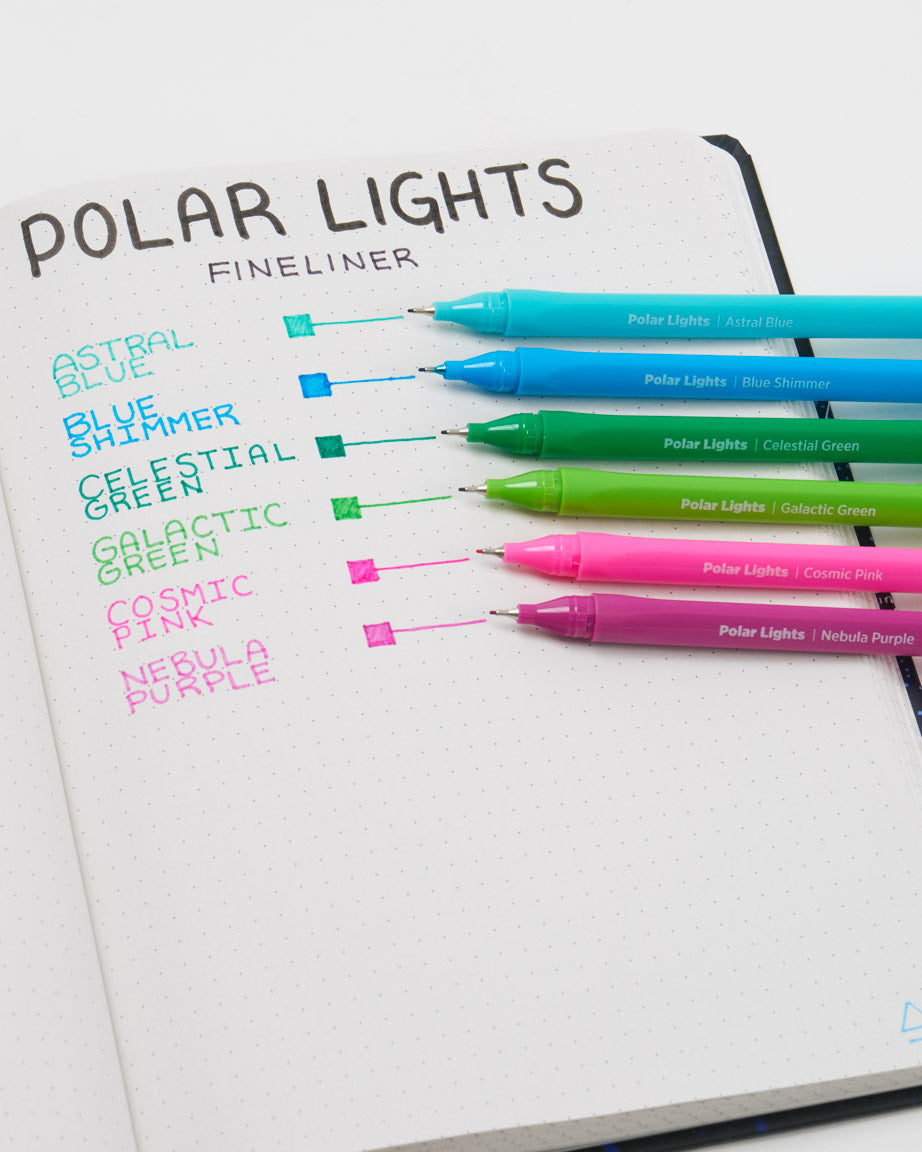 POLAR LIGHTS
FINELINER
ASTRAL
BLUE
BLUE
SHIMMER
CELESTIAL
GREEN
GALACTIC
GREEN
COSMIC
PINK
NEBULA
PURPLE
Polar Lights | Astral Blue
Polar Lights | Blue Shimmer
Polar Lights | Celestial Green
Polar Lights | Galactic Green
Polar Lights | Cosmic Pink
Polar Lights | Nebula Purple